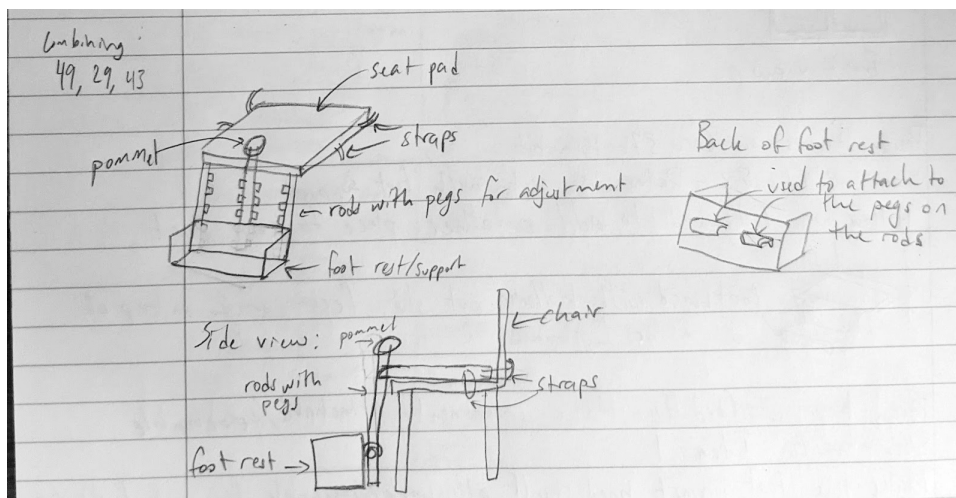 Combining:
49, 29, 43
seat pad
straps
pommel
rods with pegs for adjustment
foot rest/support
Back of foot rest
used to attach to
the pegs on
the rods
Side view:
pommel
chair
rods with
pegs
straps
foot rest